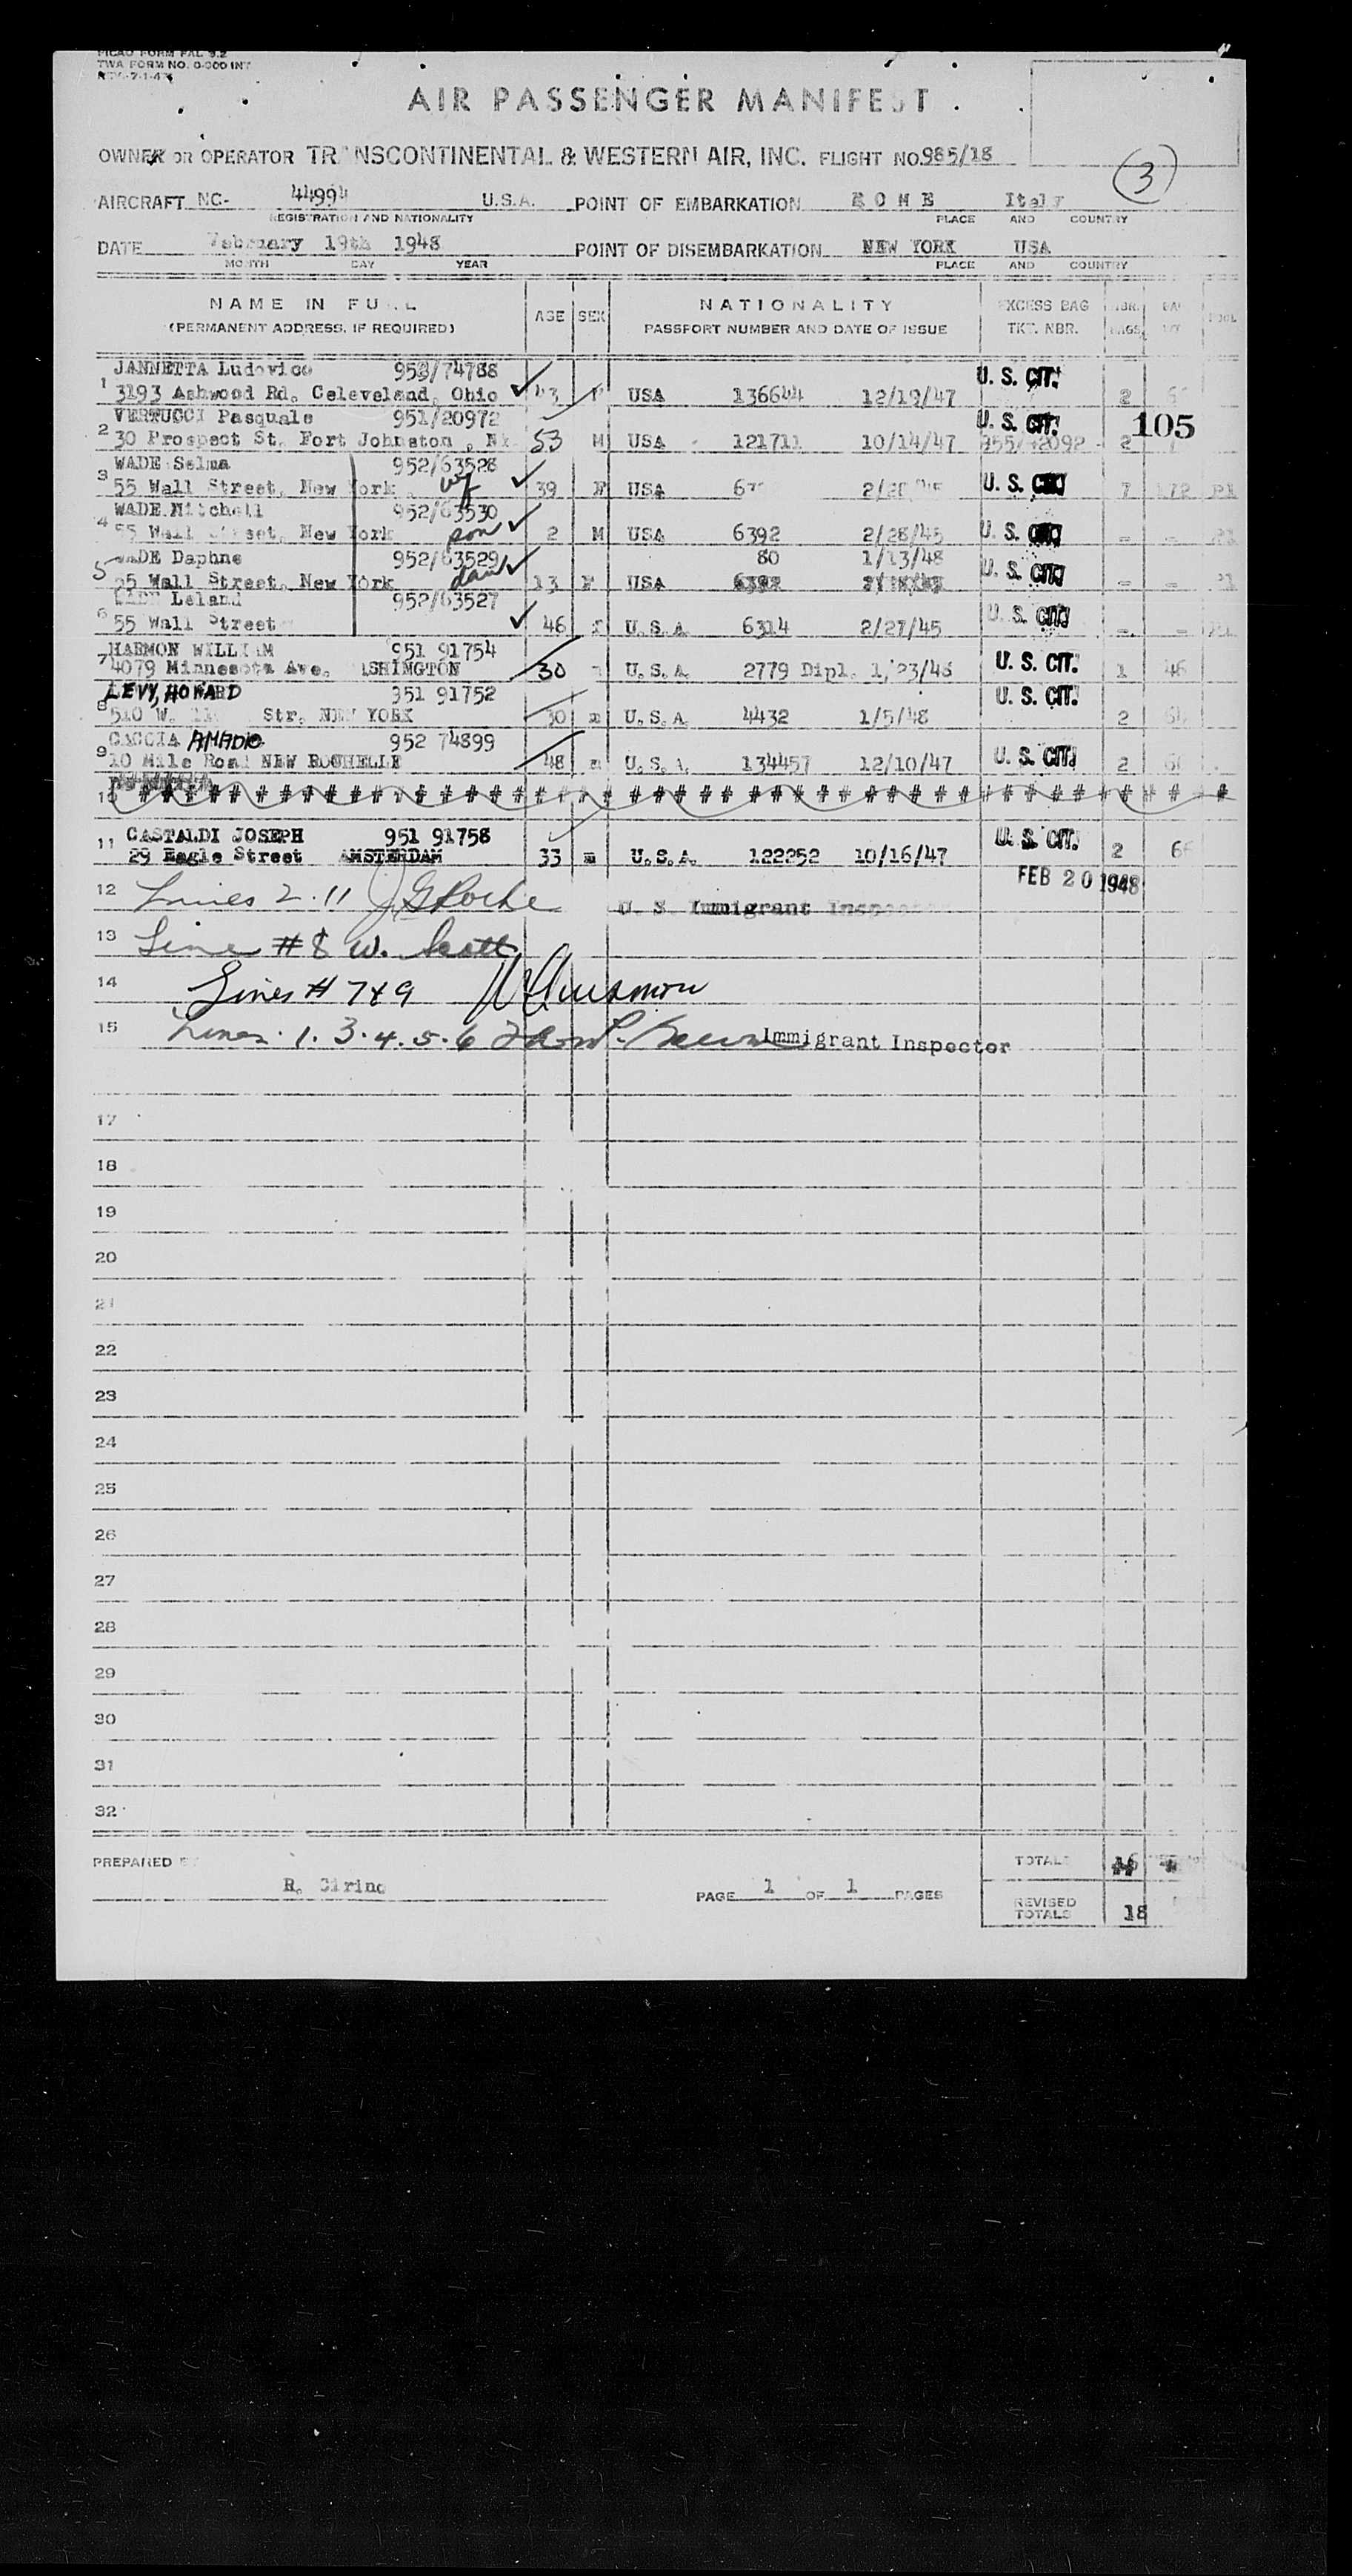 PICAO FORM PAL 9.2
TWA FORM NO. 0-000 INT
REV.-7-1-47
AIR PASSENGER MANIFEST
OWNER OR OPERATOR TRANSCONTINENTAL & WESTERN AIR, INC. FLIGHT NO. 985/18
3
AIRCRAFT NC- 44994 U.S.A. POINT OF EMBARKATION ROME Italy
REGISTRATION AND NATIONALITY PLACE AND COUNTRY
DATE February 19th 1948 POINT OF DISEMBARKATION NEW YORK USA
MONTH DAY YEAR PLACE AND COUNTRY
NAME IN FULL AGE SEX NATIONALITY EXCESS BAG NBR.
(PERMANENT ADDRESS, IF REQUIRED) PASSPORT NUMBER AND DATE OF ISSUE TKT. NBR. BAGS
JANNETTA Ludovico 953/74788 U. S. CIT.
1 3193 Ashwood Rd. Celeveland, Ohio 43 USA 136644 12/19/47 2
VERTUCCI Pasquale 951/20972 U. S. CIT. 105
2 30 Prospect St. Fort Johnston, 53 M USA 121711 10/14/47 2
WADE Selma 952/63528
3 55 Wall Street, New York wf 39 F USA U. S. CIT. 7 172
WADE Mitchell 952/63530
4 55 Wall Street, New York son 2 M USA 6392 2/28/45 U. S. CIT. - -
WADE Daphne 952/63529 80 1/13/48
5 55 Wall Street, New York dau 13 F USA 6392 U. S. CIT. - -
Leland 952/63527
6 55 Wall Street 46 U.S.A. 6314 2/27/45 U. S. CIT. - -
HARMON WILLIAM 951 91754
7 4079 Minnesota Ave. WASHINGTON 30 U.S.A. 2779 Dipl. 1/23/48 U. S. CIT. 1 46
LEVY, HOWARD 951 91752 U. S. CIT.
8 510 W. Str. NEW YORK 30 m U.S.A. 4432 1/5/48 2
CACCIA AMADIO 952 74899
9 10 Mile Road NEW ROCHELLE 48 m U.S.A. 134457 12/10/47 U. S. CIT. 2
10 # # # # # # # # # # # # # # # # # # # # # # # # # # # # # # # # # # # # # # # # # # # #
CASTALDI JOSEPH 951 91758 U. S. CIT.
11 29 Eagle Street AMSTERDAM 33 m U.S.A. 122252 10/16/47 2
FEB 20 1948
12 Lines 2. 11 J G Roche U. S. Immigrant Inspector
13 Line # 8 W. Scott
14 Lines # 7 & 9
15 Lines 1. 3. 4. 5. 6 Immigrant Inspector
17
18
19
20
21
22
23
24
25
26
27
28
29
30
31
32
PREPARED BY R. Cirino
PAGE 1 OF 1 PAGES
TOTALS 16
REVISED TOTALS 18